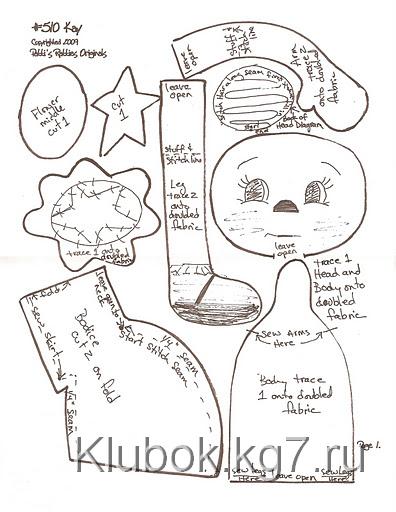 #510 Kay
Copyrighted 2009
Patti's Ratties Originals
Flower
middle
cut 1
Cut
1
leave
open
Stuff &
Stitch line
Leg
trace 2
onto
doubled
fabric
leave
open
Stuff &
Stitch
Arm
trace 2
onto doubled
fabric
Stitch Hair along seam first
start
end
Back of
Head Diagram
leave
open
trace 1 onto
doubled
fabric
trace 1
Head and
Body onto
doubled
fabric
fold
leave open to
neck
Start Stitch
seam
Sew skirt
Bodice
cut 2 on fold
1/4" seam
1/4" seam
Sew Arms
Here
Body trace
1 onto doubled
fabric
Sew Legs
Here
leave open
Sew Legs
Here
Page 1.
Klubok.kg7.ru